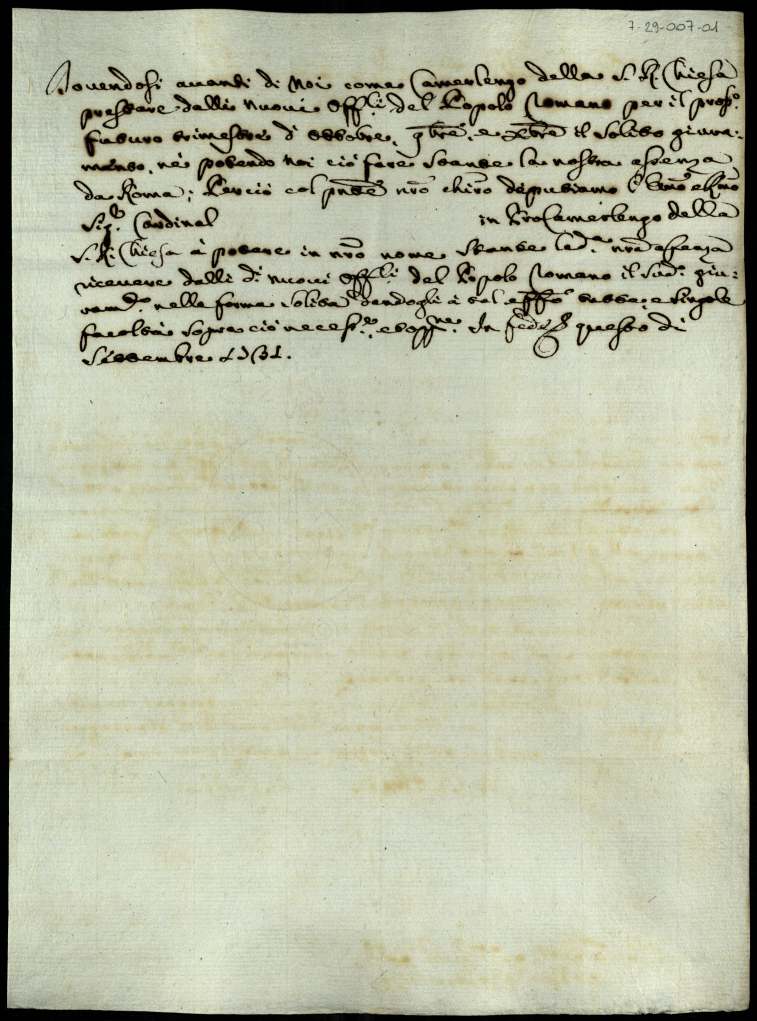 7-29-007-01
Dovendosi avanti di Noi come Camerlengo della S. R. Chiesa
prestare dalli nuovi Off.li del Popolo Romano per il pross.o
futuro trimestre di ottobre, 9bre, e Xbre il solito giura-
mento, nè potendo noi ciò fare stante la nostra assenza
da Roma; Perciò col pnte nro chiro deputiamo l' Emo e Rmo
Sig.r Cardinal in Pro Camerlengo della
S. R. Chiesa à potere in nro nome stante la d.a nra assenza
ricevere dalli d.i nuovi Off.li del Popolo Romano il sud.o giu-
ram.to nella forma solita dandogli à tal effto tutte, e singole
facoltà sopra ciò necess.e, et opp.ne. In fede questo dì
Settembre 1731.